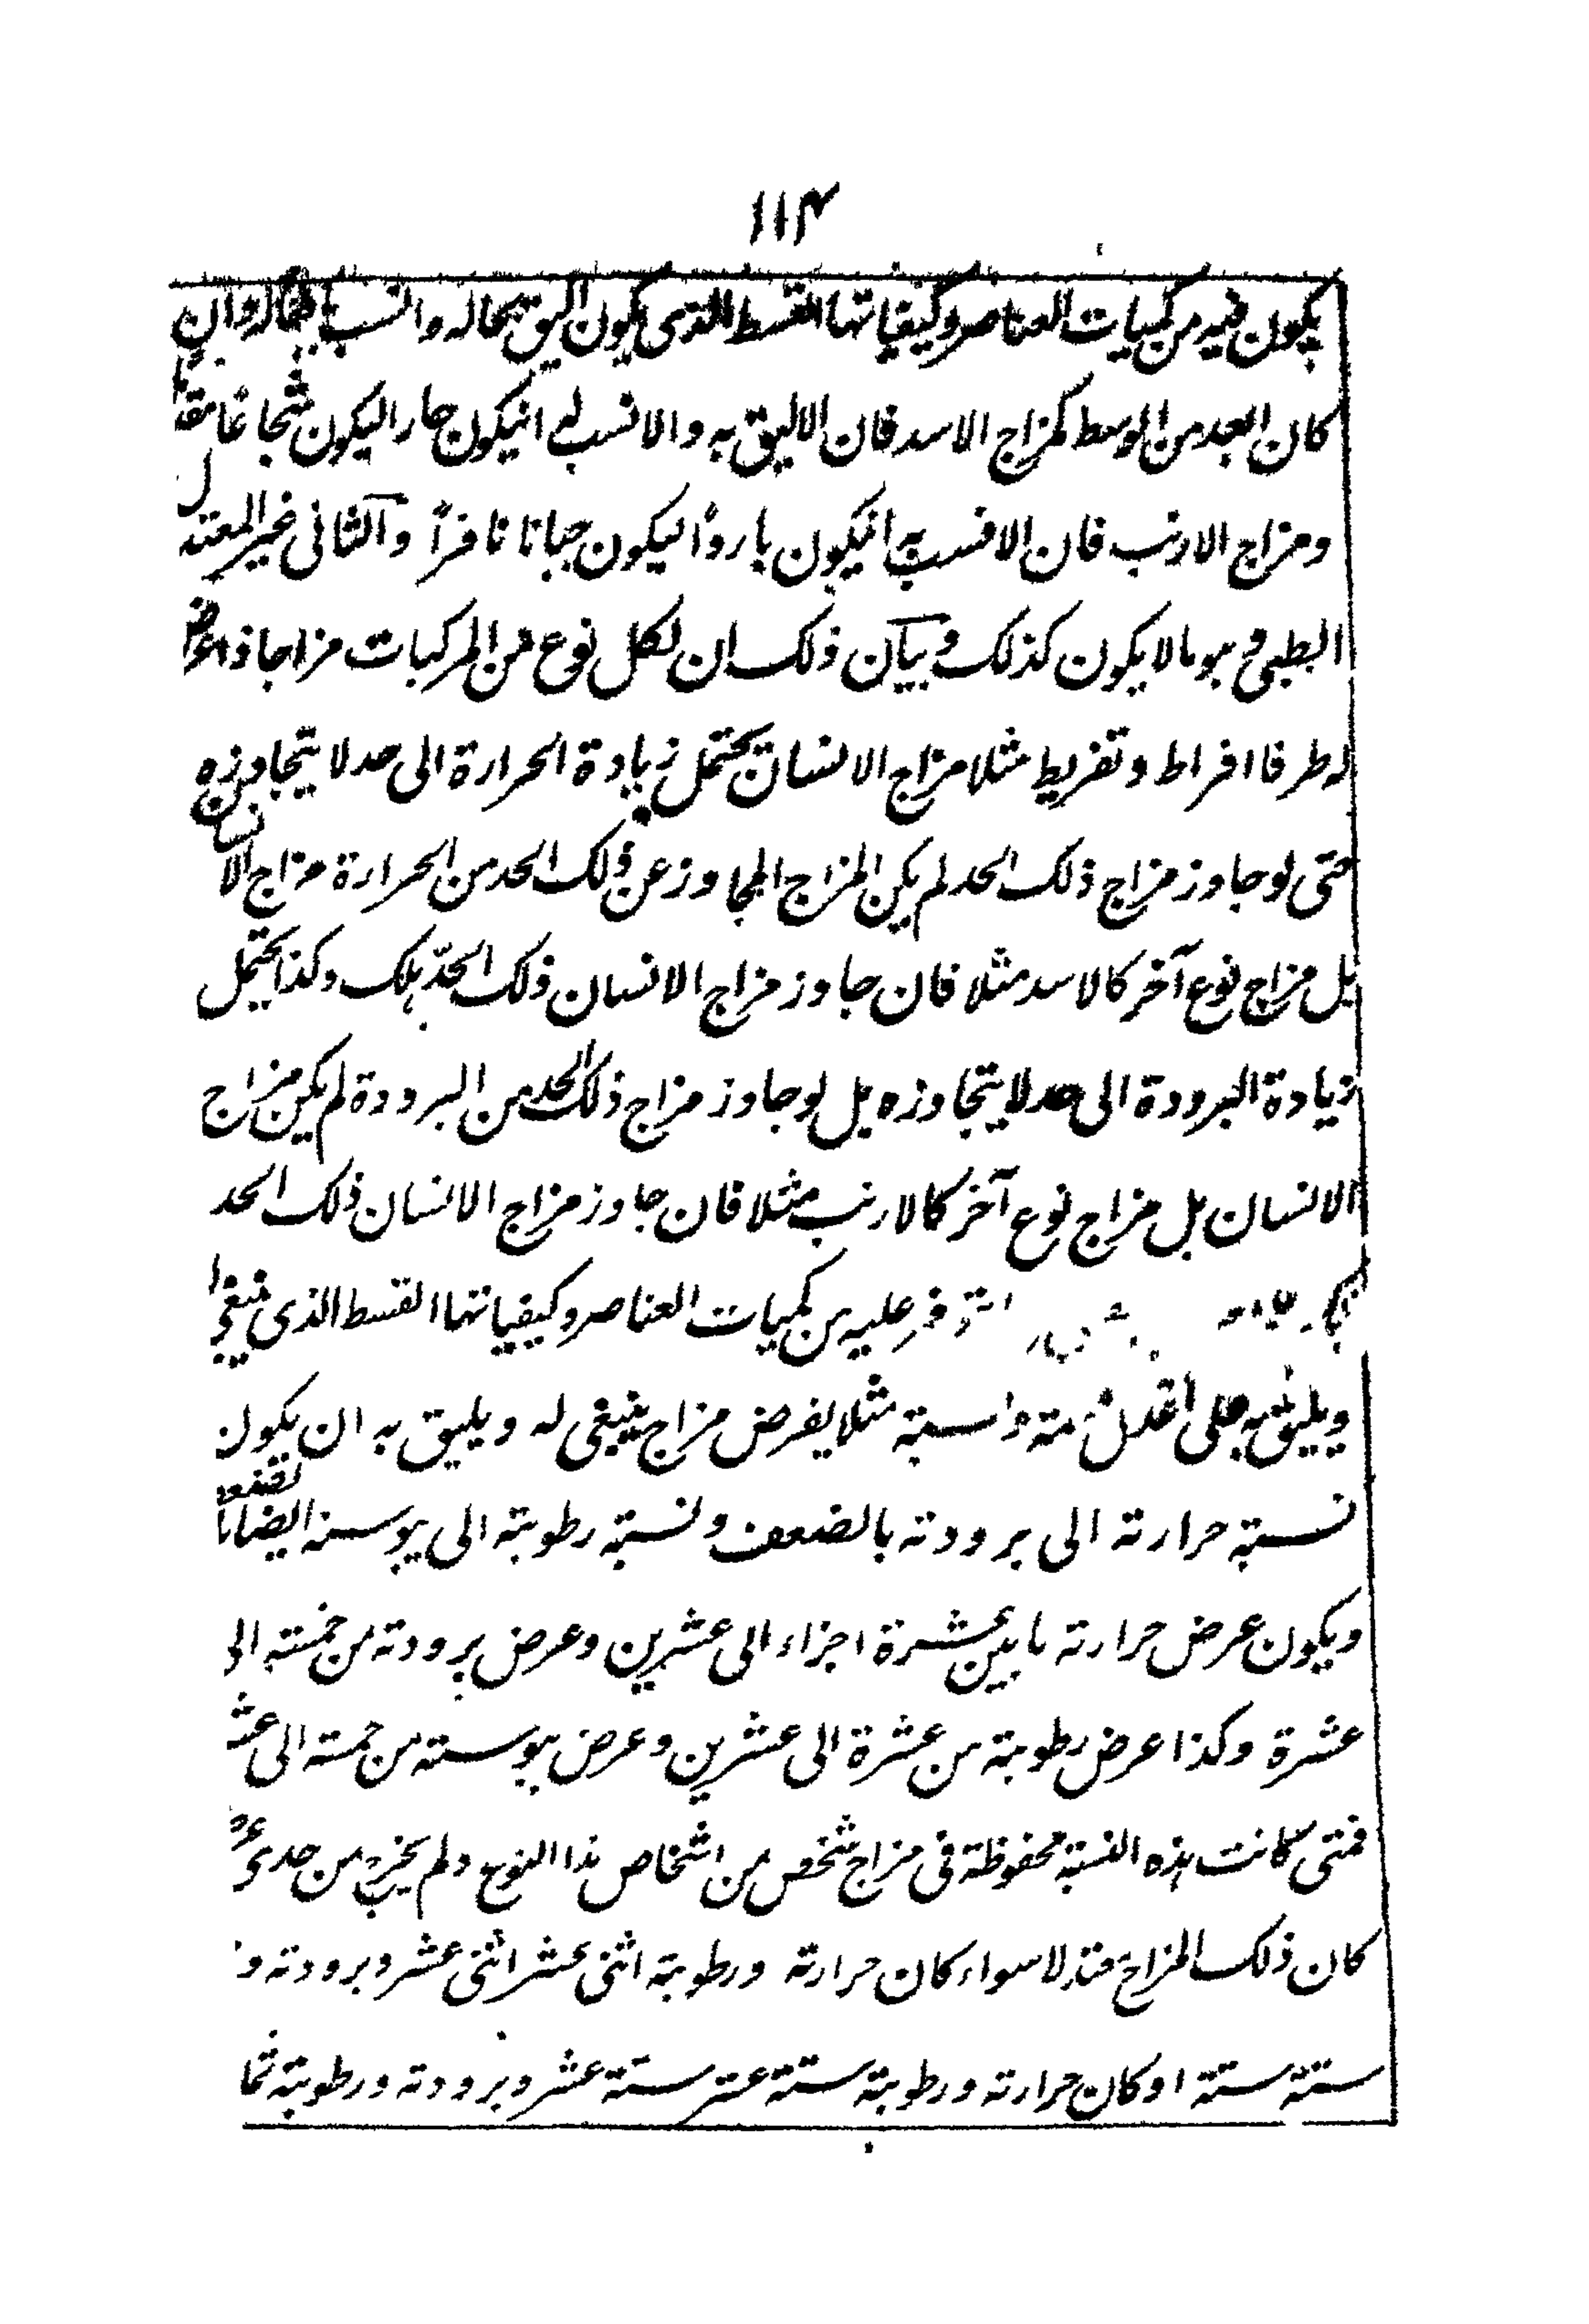 ۱۱۴
يكون فيه من كميات العناصر وكيفياتها القسط الذى يكون اليق بحاله وانسب بافعاله وان
كان ابعد من الوسط كمزاج الاسد فان الاليق به والانسب له انيكون حارا ليكون شجاعا مقداما
ومزاج الارنب فان الانسب به انيكون باردًا ليكون جبانا نافرًا والثانى غير المعتدل
الطبى وهو ما لا يكون كذلك وبيان ذلك ان لكل نوع من المركبات مزاجا ذا عرض
له طرفا افراط وتفريط مثلا مزاج الانسان يحتمل زيادة الحرارة الى حد لا يتجاوزه
حتى لو جاوز مزاج ذلك الحد لم يكن المزاج المجاوز عن ذلك الحد من الحرارة مزاج الانسان
بل مزاج نوع آخر كالاسد مثلا فان جاوز مزاج الانسان ذلك الحدّ هلك وكذا يحتمل
زيادة البرودة الى حد لا يتجاوزه بل لو جاوز مزاج ذلك الحد من البرودة لم يكن مزاج
الانسان بل مزاج نوع آخر كالارنب مثلا فان جاوز مزاج الانسان ذلك الحد
عليه من كميات العناصر وكيفياتها القسط الذى ينبغى
ويليق به على اعدل قسمة ونسبة مثلا يفرض مزاج ينبغى له ويليق به ان يكون
نسبة حرارته الى برودته بالضعف ونسبة رطوبته الى يبوسته ايضا بالضعف
ويكون عرض حرارته ما بين عشرة اجزاء الى عشرين وعرض برودته من خمسة الى
عشرة وكذا عرض رطوبته من عشرة الى عشرين وعرض يبوسته من خمسة الى عشر
فمتى كانت هذه النسبة محفوظة فى مزاج شخص من اشخاص هذا النوع ولم يخرج من حدى
كان ذلك المزاج معتدلا سواء كان حرارته ورطوبته اثنى عشر اثنى عشر وبرودته و
ستة ستة او كان حرارته ورطوبته ستة عشر ستة عشر وبرودته ورطوبته ثما